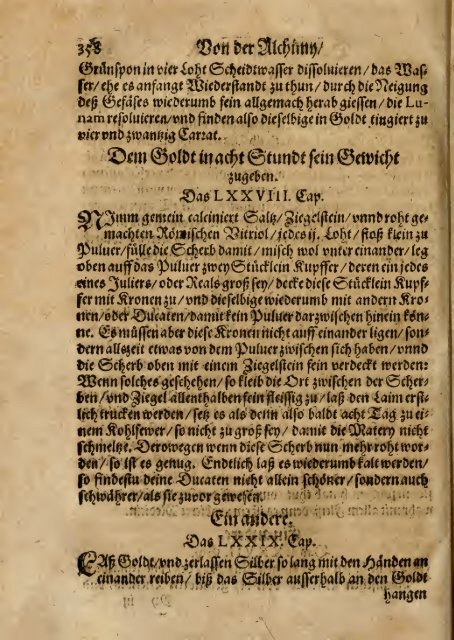 358 Von der Alchimy/
Grünspon in vier Loht Scheidtwasser dissoluieren/ das Was-
ser/ ehe es anfangt Wiederstandt zu thun/ durch die Neigung
deß Gefäses wiederumb fein allgemach herab giessen/ die Lu-
nam resoluieren/ vnd finden also dieselbige in Goldt tingiert zu
vier vnd zwantzig Carzat.
Dem Goldt in acht Stundt sein Gewicht
zugeben.
Das LXXVIII. Cap.
NImm gemein calciniert Saltz/ Ziegelstein/ vnnd roht ge-
machten Römischen Vitriol/ jedes ij. Loht/ stoß klein zu
Puluer/ fülle die Scherb damit/ misch wol vnter einander/ leg
oben auff das Puluer zwey Stücklein Kupffer/ deren ein jedes
eines Juliers/ oder Reals groß sey/ decke diese Stücklein Kupf-
fer mit Kronen zu/ vnd dieselbige wiederumb mit andern Kro-
nen/ oder Ducaten/ damit kein Puluer darzwischen hinein kön-
ne. Es müssen aber diese Kronen nicht auff einander ligen/ son-
dern allszeit etwas von dem Puluer zwischen sich haben/ vnnd
die Scherb oben mit einem Ziegelstein fein verdeckt werden:
Wenn solches geschehen/ so kleib die Ort zwischen der Scher-
ben/ vnd Ziegel allenthalben fein fleissig zu/ laß den Laim erst-
lich trucken werden/ setz es als denn also baldt acht Tag zu ei-
nem Kohlfewer/ so nicht zu groß sey/ damit die Matery nicht
schmeltze. Derowegen wenn diese Scherb nun mehr roht wor-
den/ so ist es genug. Endtlich laß es wiederumb kalt werden/
so findestu deine Ducaten nicht allein schöner/ sondern auch
schwährer/ als sie zuvor gewesen.
Ein andere.
Das LXXIX. Cap.
LAß Goldt/ vnd zerlassen Silber so lang mit den Händen an
einander reiben/ biß das Silber ausserhalb an den Goldt
hangen